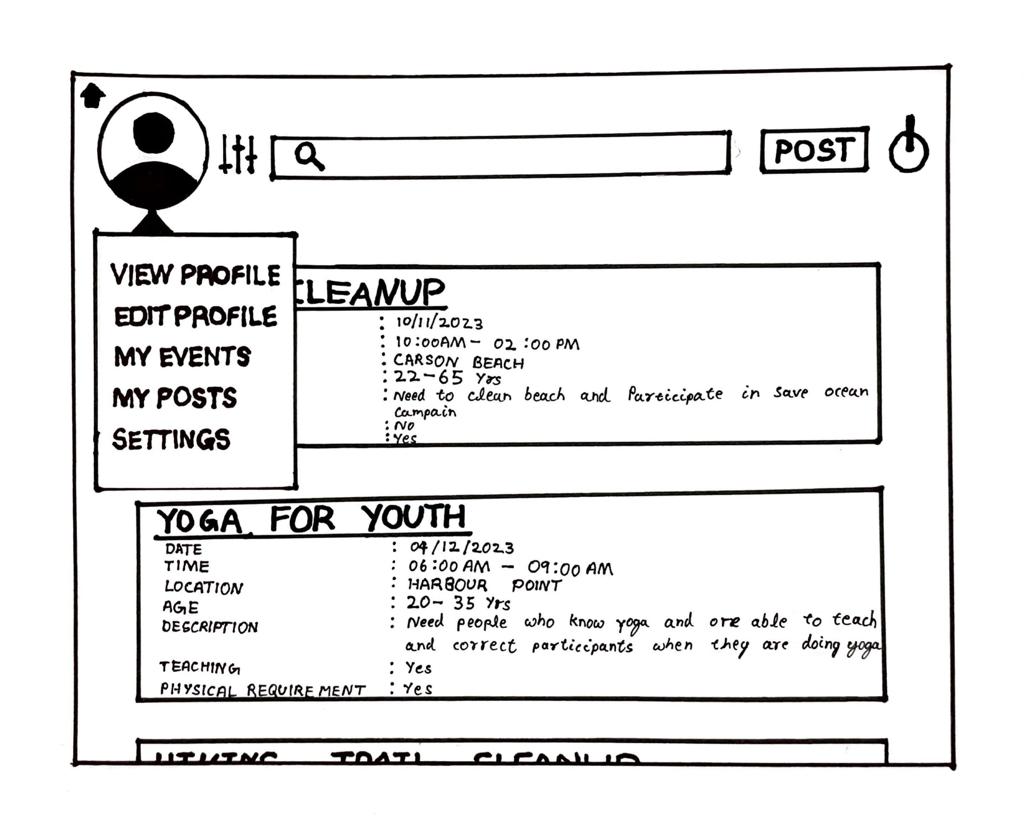 POST
VIEW PROFILE
EDIT PROFILE
MY EVENTS
MY POSTS
SETTINGS
CLEANUP
: 10/11/2023
: 10:00AM - 02:00 PM
: CARSON BEACH
: 22-65 Yrs
: Need to clean beach and Participate in save ocean
Campain
: No
: Yes
YOGA FOR YOUTH
DATE : 04/12/2023
TIME : 06:00 AM - 09:00 AM
LOCATION : HARBOUR POINT
AGE : 20- 35 Yrs
DESCRIPTION : Need people who know yoga and are able to teach
and correct participants when they are doing yoga
TEACHING : Yes
PHYSICAL REQUIREMENT : Yes
HIKING TRAIL CLEANUP